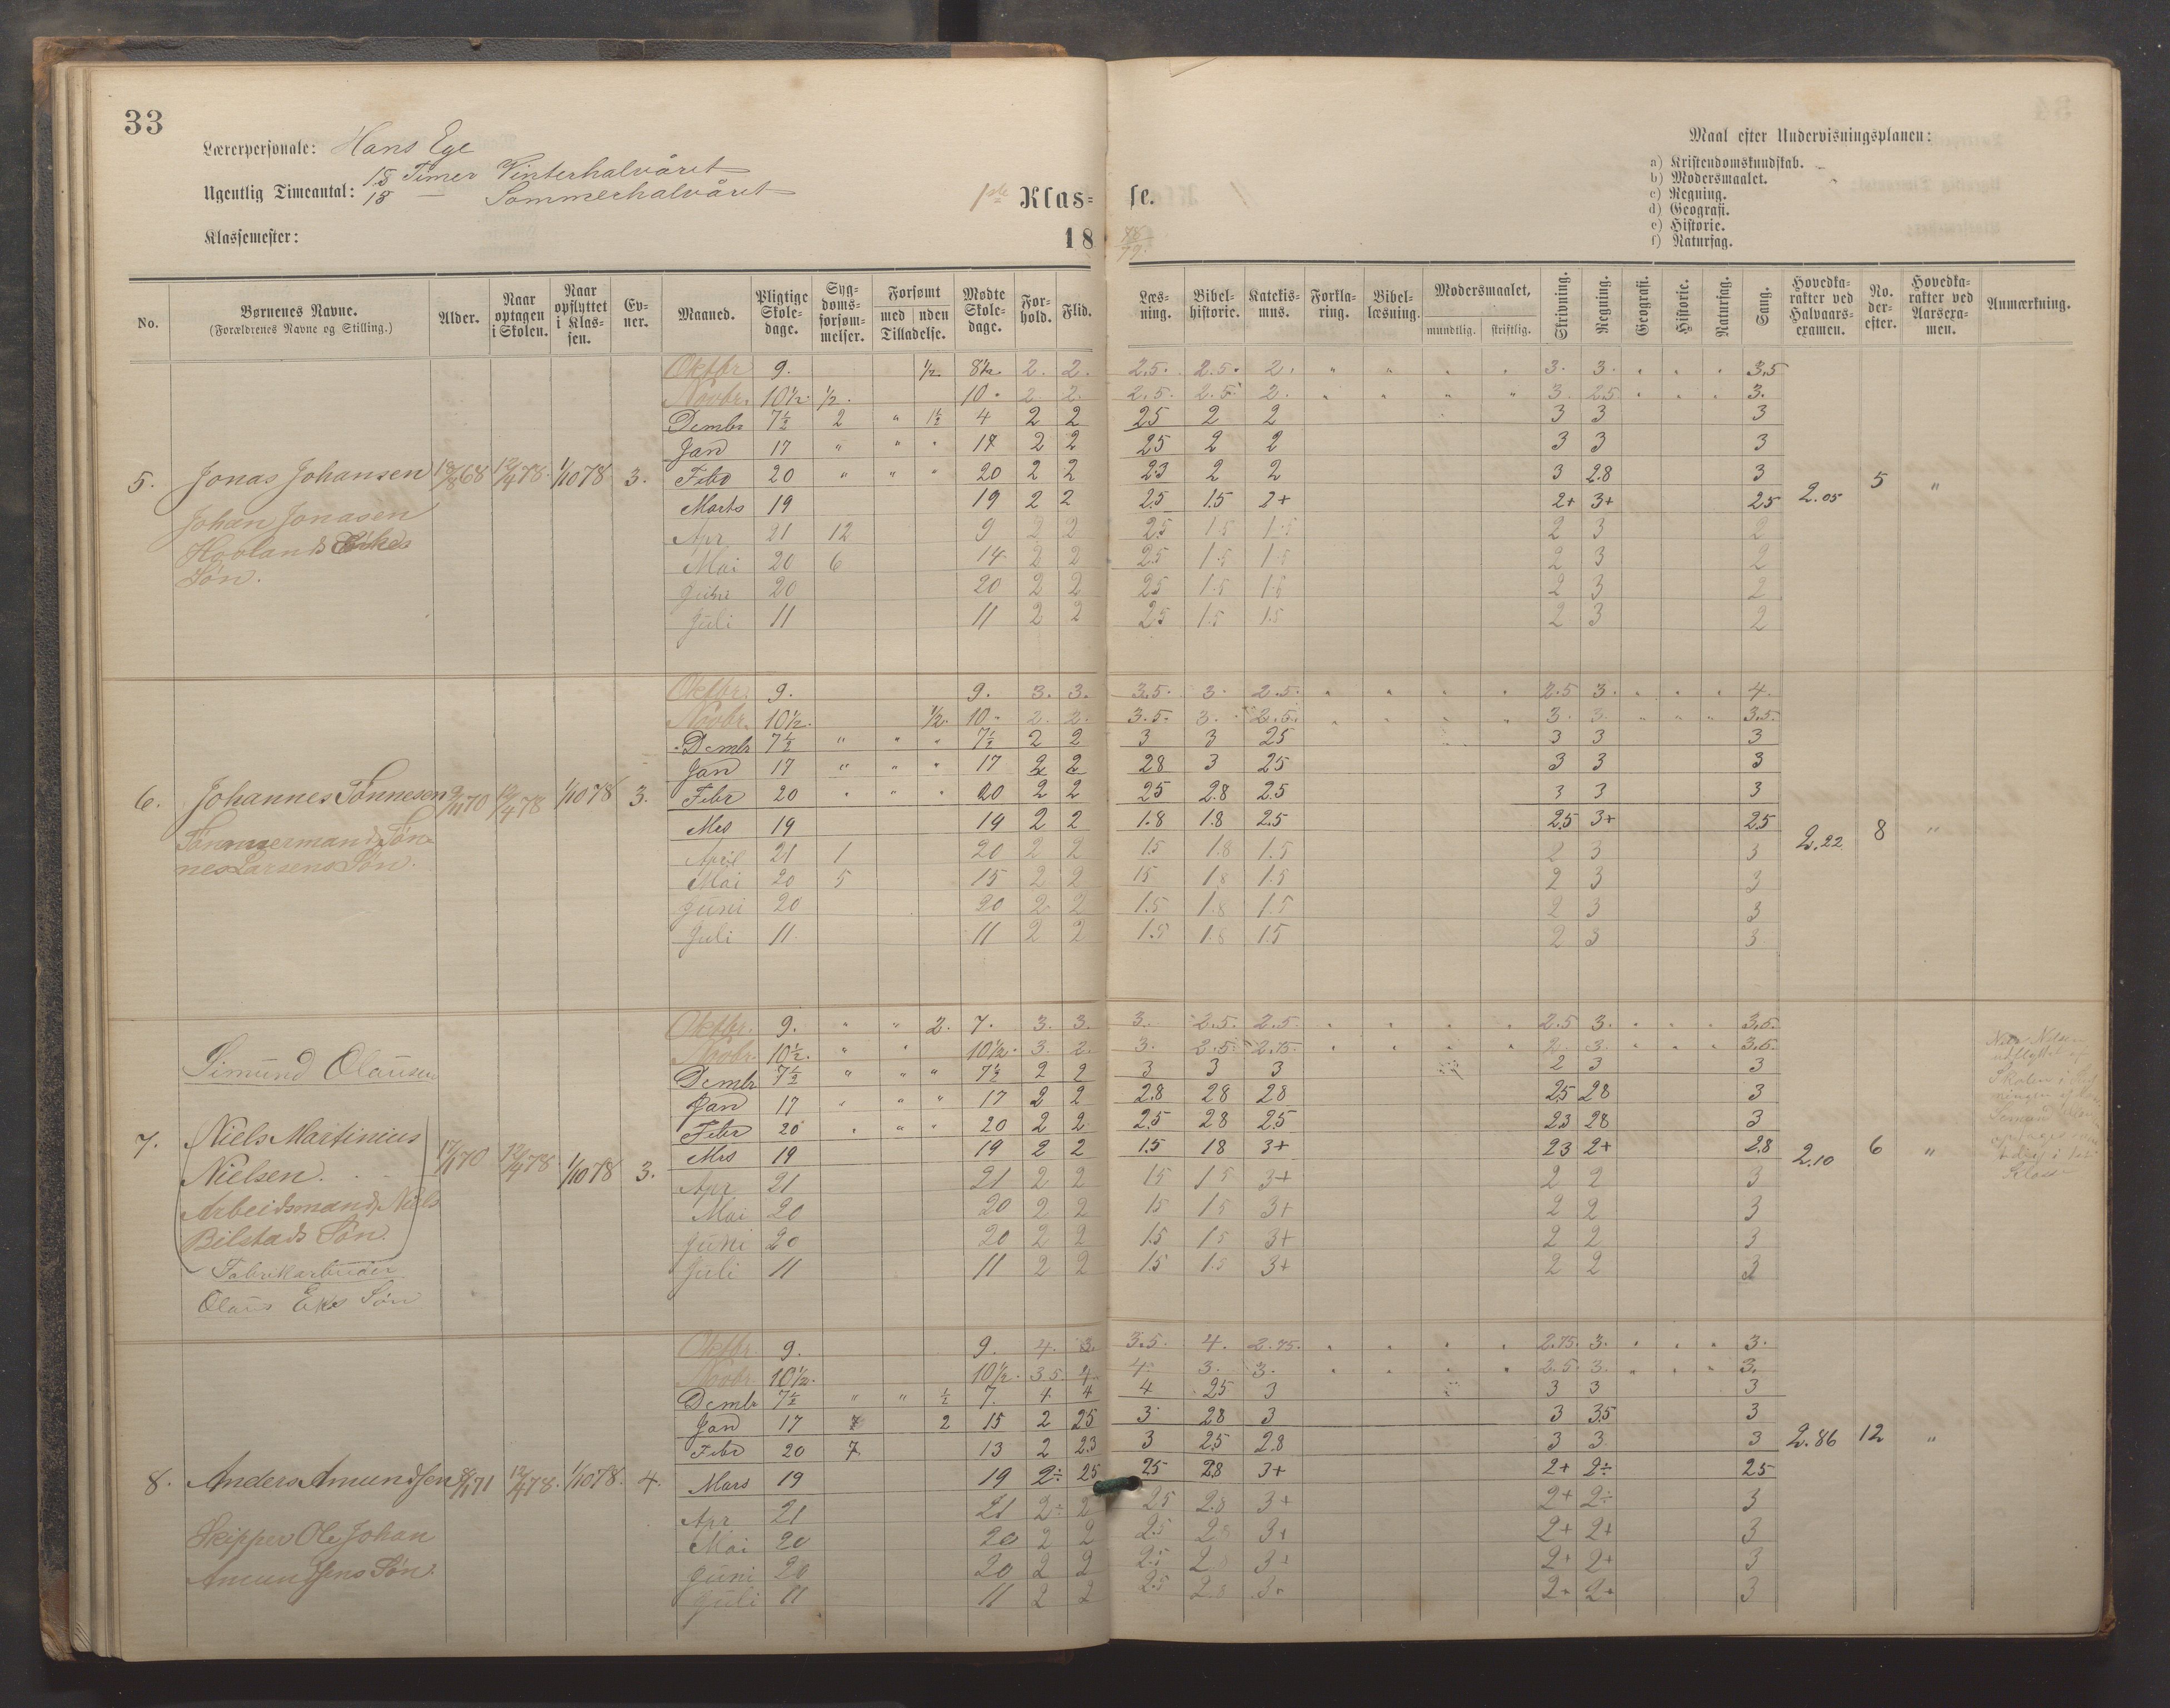 33
Lærerpersonale: Hans Ege
Ugentlig Timeantal: 18 Timer Vinterhalvåret
18 — Sommerhalvåret
Klassemester:
1ste Klas- se.
18 78/79
Maal efter Undervisningsplanen:
a) Kristendomskundskab.
b) Modersmaalet.
c) Regning.
d) Geografi.
e) Historie.
f) Naturfag.
No. | Børnenes Navne. (Forældrenes Navne og Stilling.) | Alder. | Naar optagen i Skolen. | Naar opflyttet i Klassen. | Evner. | Maaned. | Pligtige Skoledage. | Sygdomsforsømmelser. | Forsømt med Tilladelse. | uden Tilladelse. | Mødte Skoledage. | Forhold. | Flid. | Læsning. | Bibelhistorie. | Katekismus. | Forklaring. | Bibellæsning. | Modersmaalet, mundtlig. | skriftlig. | Skrivning. | Regning. | Geografi. | Historie. | Naturfag. | Sang. | Hovedkarakter ved Halvaarsexamen. | No. derefter. | Hovedkarakter ved Aarsexamen. | Anmærkning.
Oktbr. 9. 1/2 8 1/2. 2. 2. 2.5. 2.5. 2. " " " " 3. 3. " " " 3,5
Novbr. 10 1/2. 1/2. 10. 2. 2. 2.5. 2.5. 2. " " " " 3. 2.5 " " " 3.
Dcmbr 7 1/2 2 " 1 1/2 4 2 2 25 2 2 3 3 3
Jan 17 " " " 17 2 2 25 2 2 3 3 3
5. Jonas Johansen 12/4 78. 1/10 78 3. Febr 20 " " " 20 2 2 23 2 2 3 2.8 3 2.05 5 "
Marts 19 19 2 2 25 15 2+ 2+ 3+ 25
Johan Jonasen Apr 21 12 9 2 2 25 15 1.5 2 3 2
Hovlands Mai 20 6 14 2 2 25 1.5 1.5 2 3 2
Søn. Juni 20 20 2 2 25 1.5 1.5 2 3 2
Juli 11 11 2 2 25 15 1.5 2 3 2
Oktbr. 9. 9. 3. 3. 3.5. 3. 2.5. " " " " 2.5 3. " " " 4.
Novbr. 10 1/2. 1/2. 10 " 2. 2. 3.5. 3. 2.5. " " " " 3. 3. " " " 3,5.
Dcmbr 7 1/2 " " " 7 1/2 2 2 3 3 25 3 3 3
Jan 17 " " " 17 2 2 28 3 25 3 3 3
6. Johannes Tønnesen 9/11 70 12/4 78 1/10 78 3. Febr 20 " " " 20 2 2 25 2.8 2.5 3 3 3
Mrs 19 19 2 2 1.8 1.8 2.5 25 3+ 25 2.22 8 "
Tømmermand Tøn- April 21 1 20 2 2 15 1.8 1.5 2 3 3
nes Larsens Søn. Mai 20 5 15 2 2 15 18 1.5 2 3 3
Juni 20 20 2 2 1.5 1.8 1.5 2 3 3
Juli 11 11 2 2 1.5 1.8 1.5 2 3 3
Oktbr. 9. " " 2. 7. 3. 3. 3. 2.5. 2.5. " " " " 2.5 3. " " " 3,5.
Novbr. 10 1/2. " " 10 1/2. 3. 2. 3. 2.5. 2.75. " " " " 2. 3. " " " 3.5.
Simund Olausen Dcmbr 7 1/2 " " " 7 1/2 2 2 3 3 3 2 3 3
Jan 17 " " " 17 2 2 2.8 28 28 25 28 3
Febr 20 " " " 20 2 2 2.5 28 2.5 23 28 3
7. Niels Martinius 17/1 70 12/4 78 1/10 78 3. Mrs 19 19 2 2 1.5 18 3+ 23 2+ 2.8 2.10 6 "
Nielsen. Apr 21 21 2 2 15 15 3+ 2 2 3
Arbeidsmand Niels Mai 20 20 2 2 15 15 3+ 2 2 3
Bilstads Søn. Juni 20 20 2 2 1.5 15 3+ 2 2 3
Fabrikarbeider Juli 11 11 2 2 1.5 1.5 3+ 2 2 3
Olaus Ekes Søn
Skolen i
optages
Klasse
Oktbr. 9. 9. 4. 3. 3.5. 4. 2.75. " " " " 2.75. 3. " " " 3.
Novbr. 10 1/2. 10 1/2. 3.5. 4. 4. 3. 3. " " " " 2.5 3. " " " 3.
Dcmbr 7 1/2 " " 1/2 7. 4 4 4 25 3 3 3 3
Jan 17 2 15 2 25 3 28 3 3 3.5 3
Febr 20 7 13 2 2.3 3 2.5 2.8 3 3 3 2.86 12 "
8. Anders Amundsen 8/1 71 12/4 78. 1/10 78. 4. Mars 19 19 2÷ 25 25 2.8 3+ 2+ 2÷ 25
Apr 21 21 2÷ 2 25 2.8 3+ 2+ 2÷ 3
Skipper Ole Johan Mai 20 20 2 2 2.5 2.8 3+ 2+ 2+ 3
Amundsens Søn. Juni 20 20 2 2 2.5 2.8 3+ 2+ 2+ 3
Juli 11 11 2 2 2.5 2.8 3+ 2+ 2+ 3